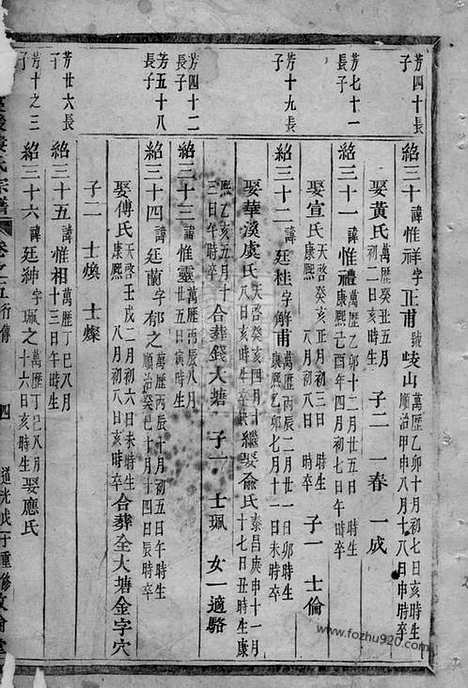 芳四十長子
紹三十諱惟祥字正甫號峻山萬曆乙卯十月初七日亥時生順治甲申八月十八日申時卒
娶黃氏萬曆癸丑五月初二日亥時生 子二 一春 一成
芳七十一長子
紹三十一諱惟禮萬曆乙卯十二月廿五日時生康熙己酉年四月初七日午時卒
娶宣氏天啓癸亥正月初三日時生 月初八日時卒 子一 士倫
芳十九長子
紹三十二諱廷桂字解甫萬曆丙辰二月廿一日卯時生 乙卯七月初十一日卯時卒
娶華溪虞氏天啓癸亥四月初十日 繼娶俞氏泰昌庚申十一月十七日丑時生康
熙乙亥五月十三日午時卒 合葬錢大塘 子一 士珮 女一適駱
芳四十二長子
紹三十三諱惟靈萬曆丙辰八月廿五日寅時生
芳五十八長子
紹三十四諱廷蘭字郁之萬曆丙辰十月初五日午時生順治癸巳十月十四日辰時卒
娶傅氏天啓壬戌二月初六日未時生康熙 月初八日亥時卒 合葬全大塘金字穴
子二 士煥 士燦
芳廿六長子
紹三十五諱惟相萬曆丁巳八月十三日午時生
芳十之三子
紹三十六諱廷紳字珮之萬曆丁巳八月十六日亥時生 娶應氏
氏宗譜 卷之五行傳 四 道光戊子重修
www.fozhu920.com